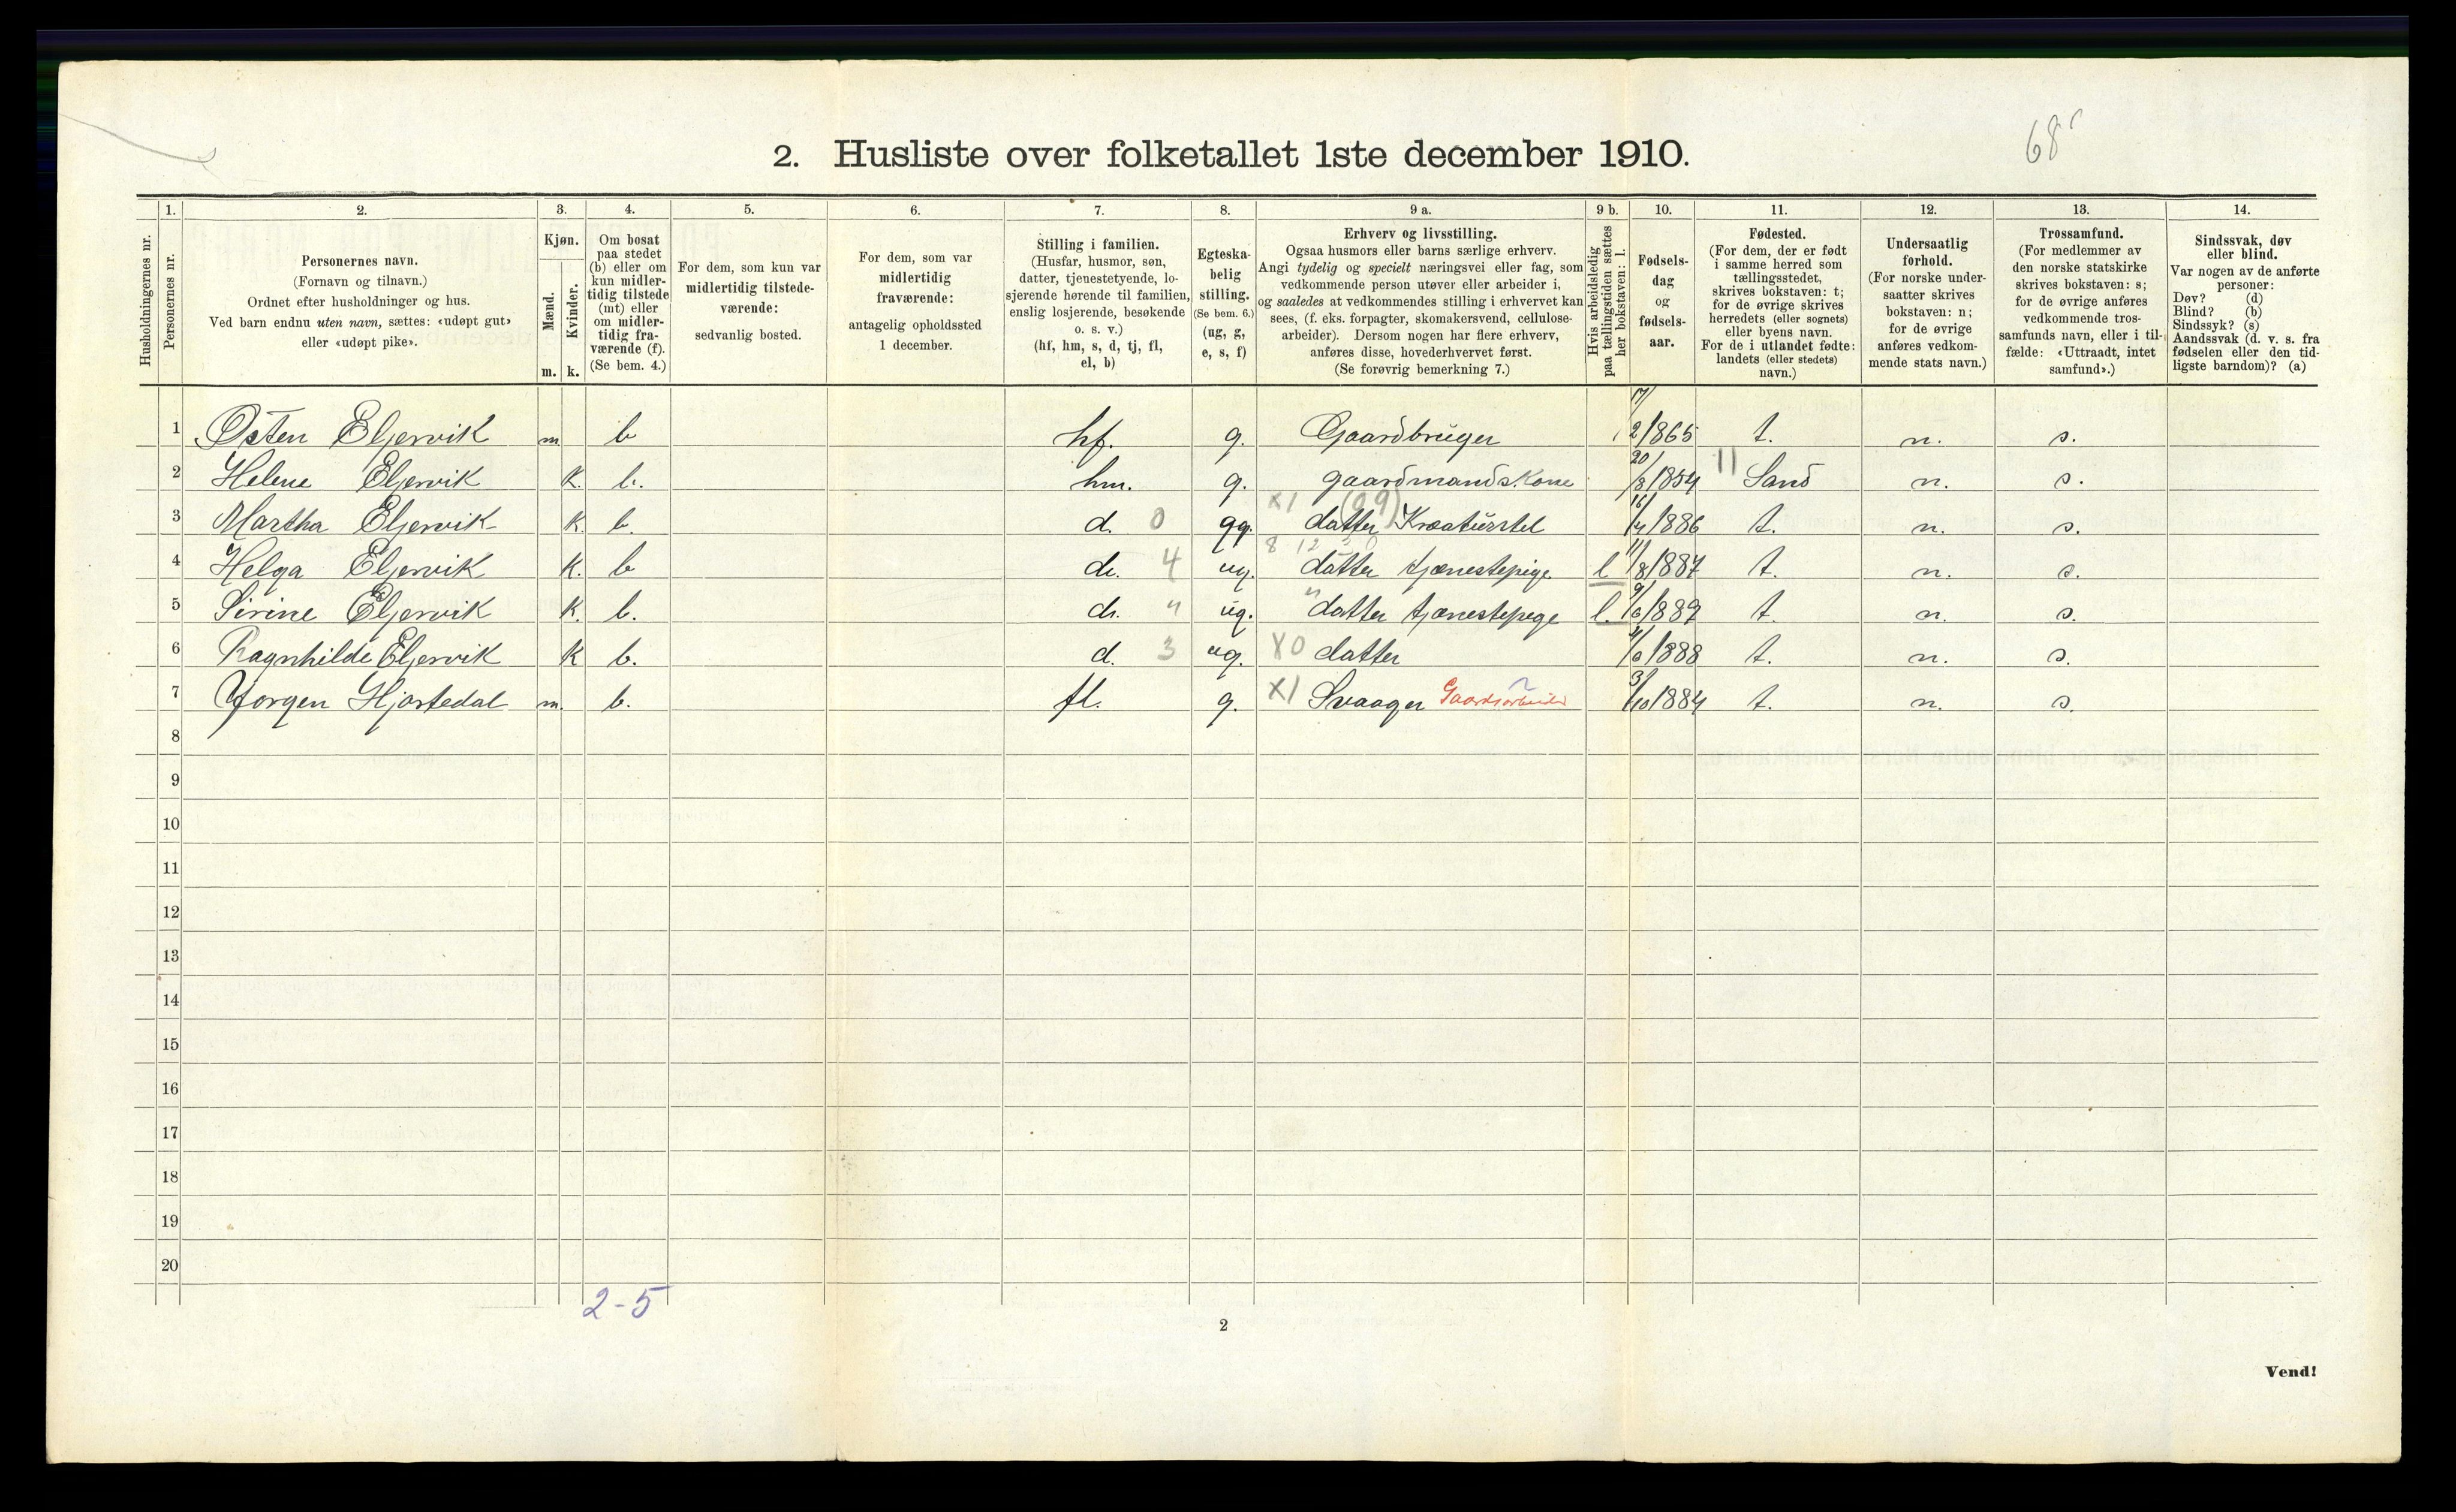 68
2. Husliste over folketallet 1ste december 1910.
1. 2. 3. 4. 5. 6. 7. 8. 9 a. 9 b. 10. 11. 12. 13. 14.
Husholdningernes nr.
Personernes nr.
Personernes navn.
(Fornavn og tilnavn.)
Ordnet efter husholdninger og hus.
Ved barn endnu uten navn, sættes: «udøpt gut»
eller «udøpt pike».
Kjøn.
Mænd.
Kvinder.
m. k.
Om bosat
paa stedet
(b) eller om
kun midler-
tidig tilstede
(mt) eller
om midler-
tidig fra-
værende (f).
(Se bem. 4.)
For dem, som kun var
midlertidig tilstede-
værende:
sedvanlig bosted.
For dem, som var
midlertidig
fraværende:
antagelig opholdssted
1 december.
Stilling i familien.
(Husfar, husmor, søn,
datter, tjenestetyende, lo-
sjerende hørende til familien,
enslig losjerende, besøkende
o. s. v.)
(hf, hm, s, d, tj, fl,
el, b)
Egteska-
belig
stilling.
(Se bem. 6.)
(ug, g,
e, s, f)
Erhverv og livsstilling.
Ogsaa husmors eller barns særlige erhverv.
Angi tydelig og specielt næringsvei eller fag, som
vedkommende person utøver eller arbeider i,
og saaledes at vedkommendes stilling i erhvervet kan
sees, (f. eks. forpagter, skomakersvend, cellulose-
arbeider). Dersom nogen har flere erhverv,
anføres disse, hovederhvervet først.
(Se forøvrig bemerkning 7.)
Hvis arbeidsledig
paa tællingstiden sættes
her bokstaven: l.
Fødsels-
dag
og
fødsels-
aar.
Fødested.
(For dem, der er født
i samme herred som
tællingsstedet,
skrives bokstaven: t;
for de øvrige skrives
herredets (eller sognets)
eller byens navn.
For de i utlandet fødte:
landets (eller stedets)
navn.)
Undersaatlig
forhold.
(For norske under-
saatter skrives
bokstaven: n;
for de øvrige
anføres vedkom-
mende stats navn.)
Trossamfund.
(For medlemmer av
den norske statskirke
skrives bokstaven: s;
for de øvrige anføres
vedkommende tros-
samfunds navn, eller i til-
fælde: «Uttraadt, intet
samfund».)
Sindssvak, døv
eller blind.
Var nogen av de anførte
personer:
Døv? (d)
Blind? (b)
Sindssyk? (s)
Aandssvak (d. v. s. fra
fødselen eller den tid-
ligste barndom)? (a)
1 Østen Eljervik m b hf. g. Gaardbruger 17/2/865 t. n. s.
2 Helene Eljervik k. b. hm. g. gaardmandskone 20/8/1854 11 Sand n. s.
3 Martha Eljervik k. b. d. 0 gg. X1 (09) datter Kreaturstel 16/4/886 t. n. s.
4 Helga Eljervik k. b d. 4 ug. 8 12 datter tjenestepige l 11/8/1887 t. n. s.
5 Sirine Eljervik k. b. d. " ug. " datter tjenestepege l. 9/6/889 t. n. s.
6 Ragnhilde Eljervik k b. d. 3 ug. X0 datter 4/6/1888 t. n. s.
7 Yørgen Hjortedal m. b. fl. g. X1 Svaager Gaardsarbeider 3/10/1884 t. n. s.
8
9
10
11
12
13
14
15
16
17
18
19
20
2-5
2
Vend!